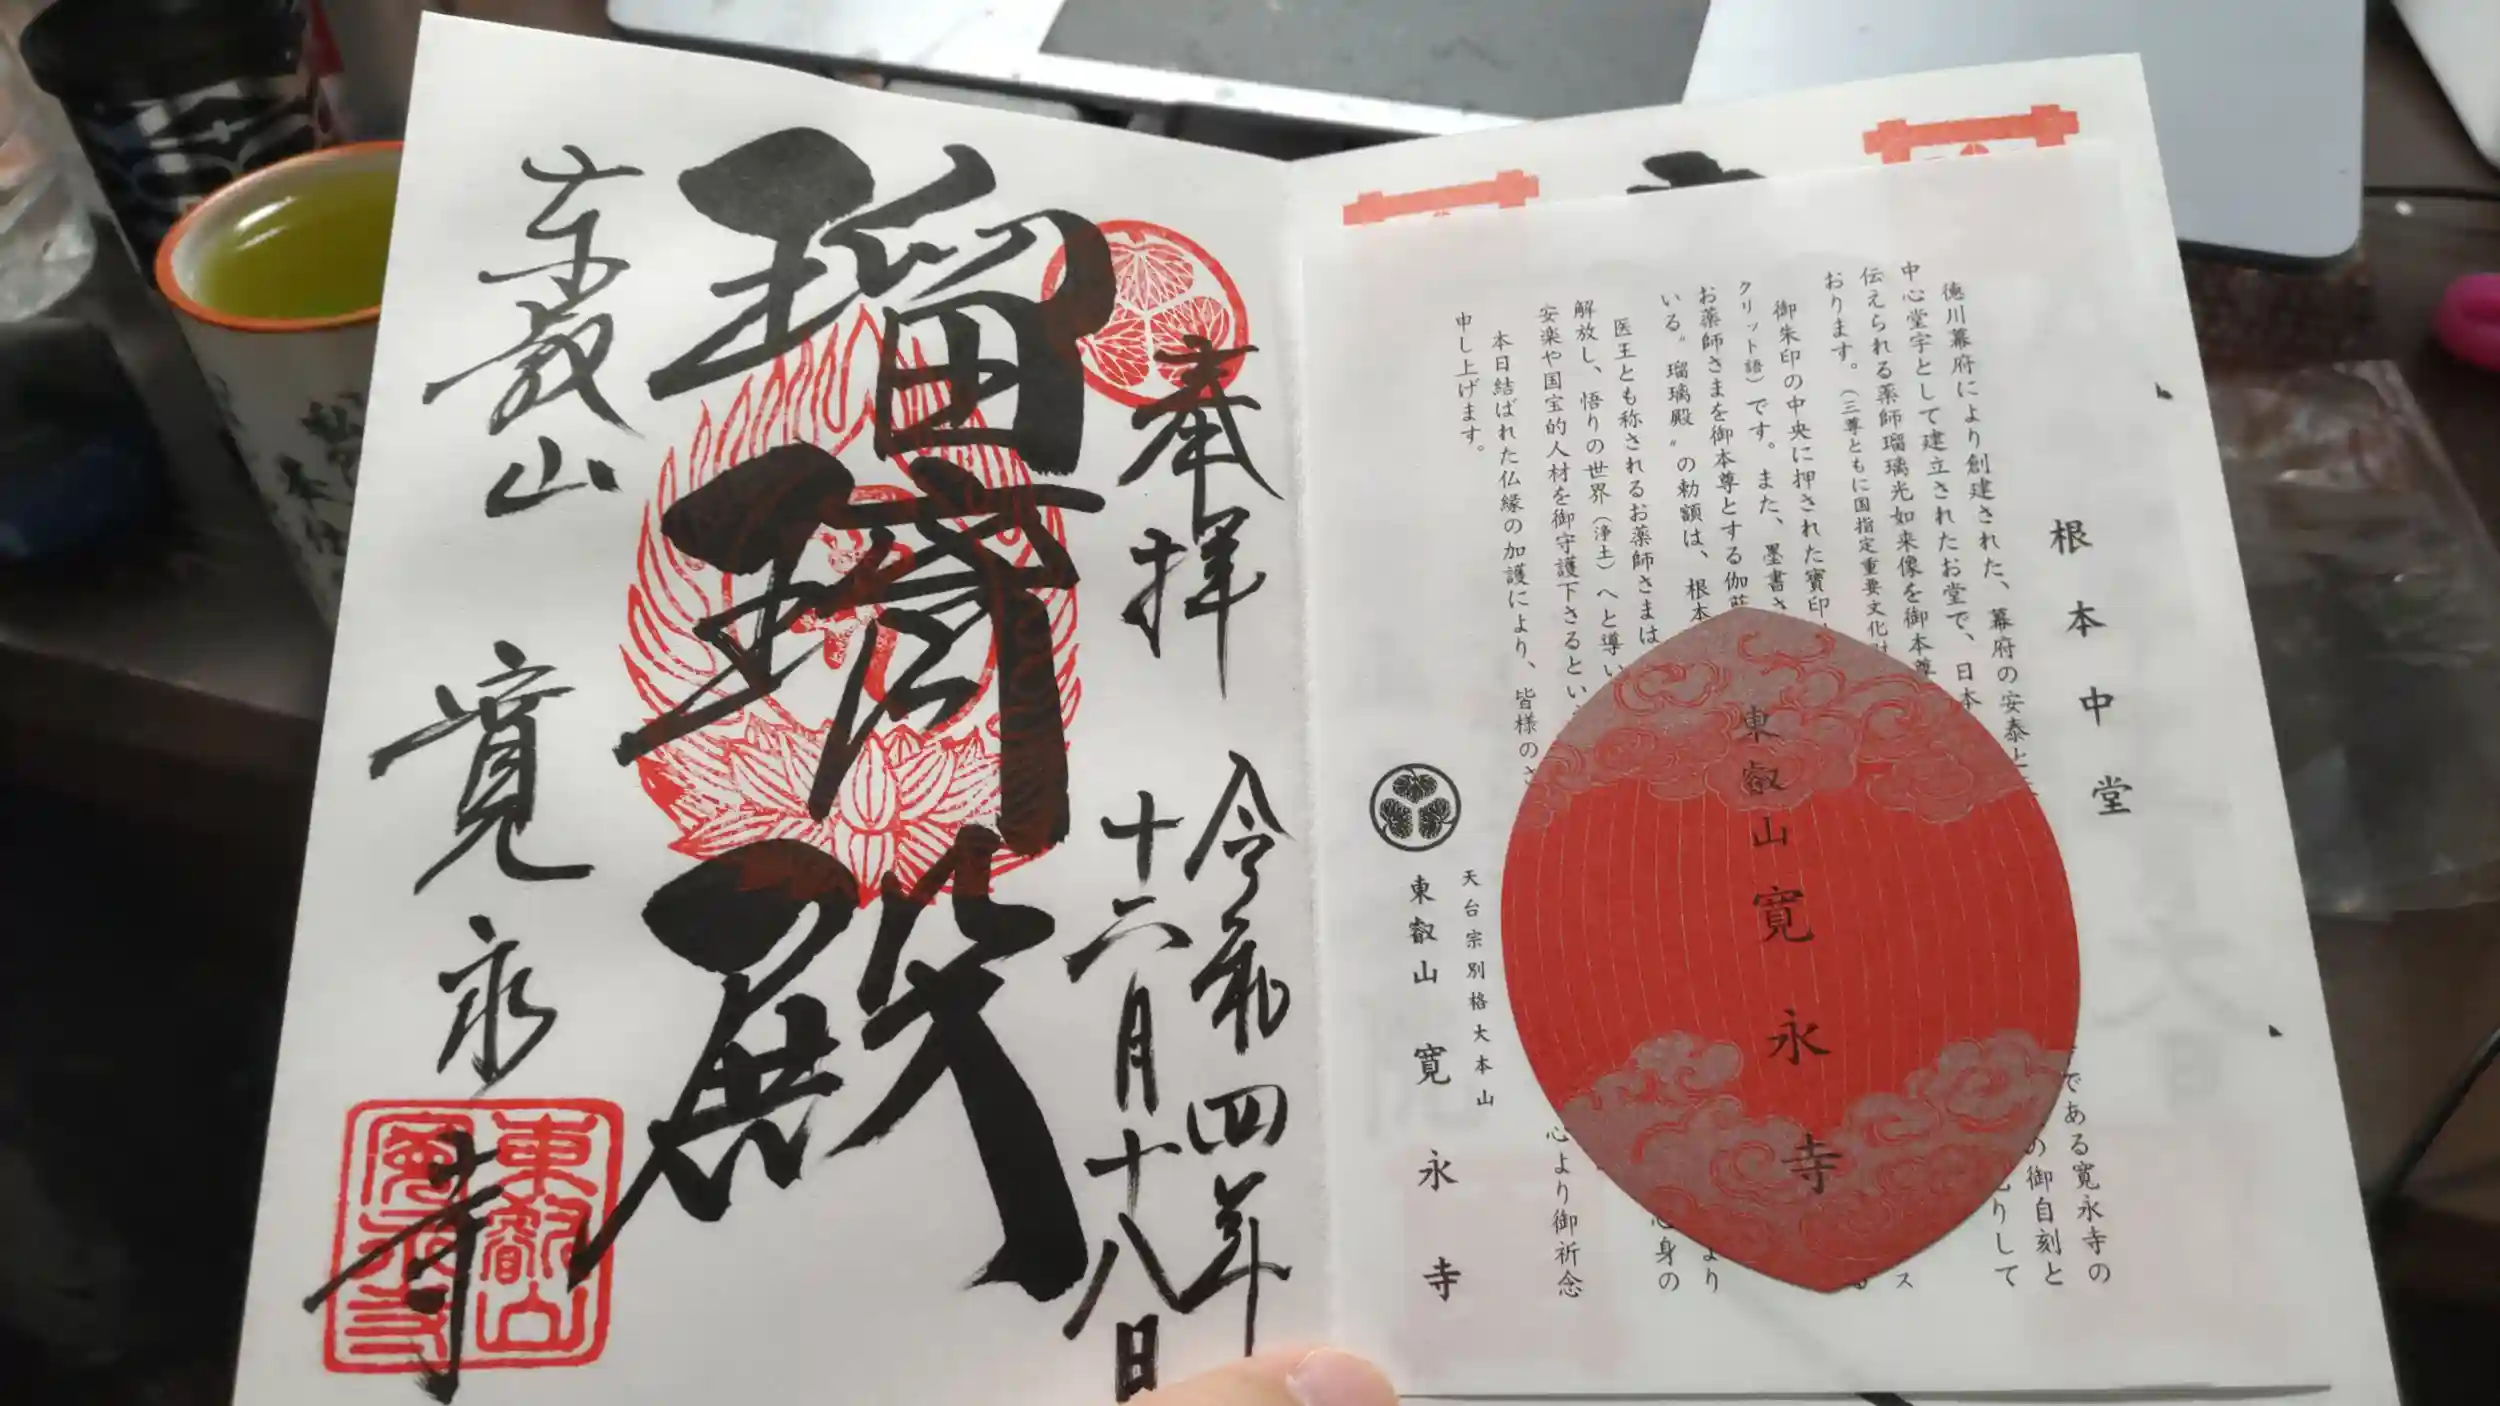 根本中堂
徳川幕府により創建された、幕府の安泰と
である寛永寺の
中心堂宇として建立されたお堂で、日本
の御自刻と
伝えられる薬師瑠璃光如来像を御本尊
りして
おります。(三尊ともに国指定重要文化財
御朱印の中央に押された寶印
ス
クリット語)です。また、墨書さ
お薬師さまを御本尊とする伽
より
いる〝瑠璃殿〟の勅額は、根本
医王とも称されるお薬師さまは
心身の
解放し、悟りの世界(浄土)へと導い
安楽や国宝的人材を御守護下さるとい
本日結ばれた仏縁の加護により、皆様のさ
心より御祈念
申し上げます。
天台宗別格大本山
東叡山 寛永寺
東叡山寛永寺
奉拝
令和四年
十二月十八日
瑠璃殿
東叡山 寛永寺
東叡山
寛永寺